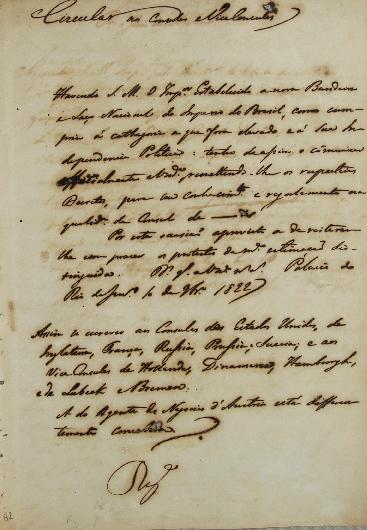 Circular aos Consules e Viceconsules
Havendo S. M. O Impor Estabelecido a nova Bandeira
e Laço Nacional do Imperio do Brasil, como cum-
pria á cathegoria a que fora elevado e á sua In-
dependencia Politica: tenho de assim o communicar
officialmente a Vmce, remettendo-lhe os respectivos
Decretos, para seu conhecimto e regulamento na
qualide de Consul de
Por esta occasião aproveito a de reiterar
lhe os protestos de estimação dis-
tinguida. Palacio do
Rio de Janro 10 de 1822
Assim se escreveo aos Consules dos Estados Unidos, da
Inglaterra, França, Russia, Prussia, Suecia; e aos
Vice Consules de Hollanda, Dinamarca, Hamburgh,
e de Lubeck e Bremen.
A do Agente de Negocios d'Austria está differen-
temente concebida
Rego
82